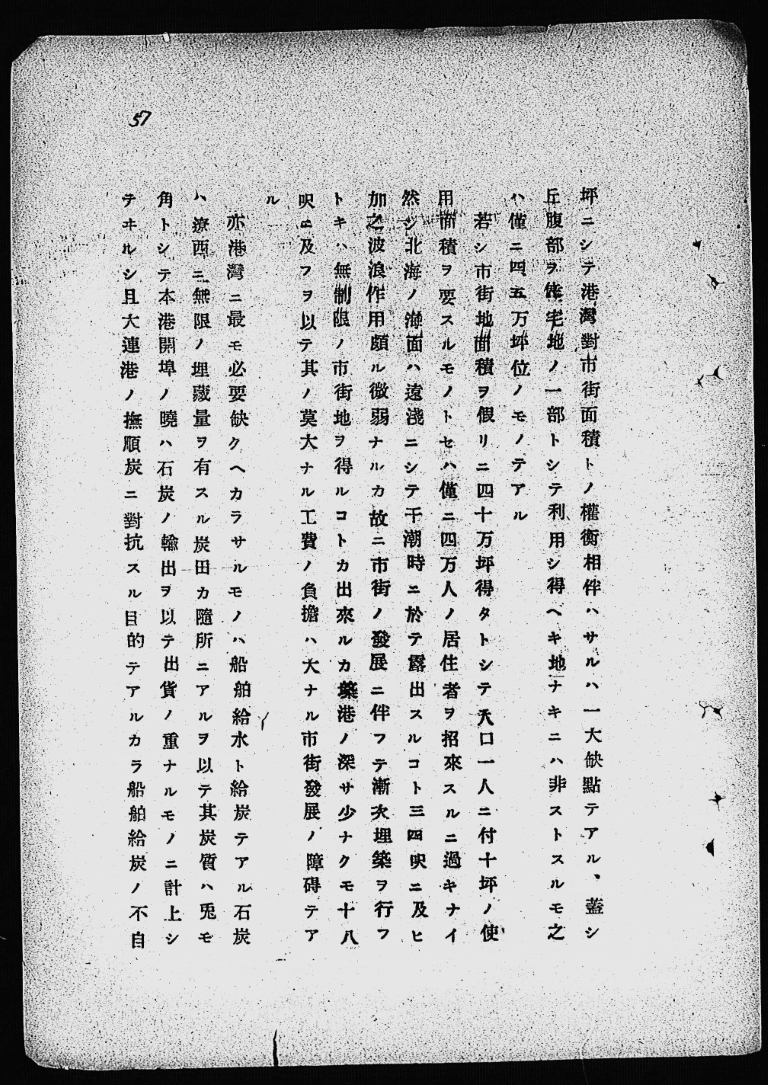 57
坪ニシテ港灣對市街面積トノ權衡相伴ハサルハ一大缺點テアル、蓋シ
丘腹部ヲ住宅地ノ一部トシテ利用シ得ヘキ地ナキニハ非ストスルモ之
ハ僅ニ四五万坪位ノモノテアル
若シ市街地面積ヲ假リニ四十万坪得タトシテ人口一人ニ付十坪ノ使
用面積ヲ要スルモノトセハ僅ニ四万人ノ居住者ヲ招來スルニ過キナイ
然シ北海ノ海面ハ遠淺ニシテ干潮時ニ於テ露出スルコト三四呎ニ及ヒ
加之波浪作用頗ル微弱ナルカ故ニ市街ノ發展ニ伴フテ漸次埋築ヲ行フ
トキハ無制限ノ市街地ヲ得ルコトカ出來ルカ築港ノ深サ少ナクモ十八
呎ニ及フヲ以テ其ノ莫大ナル工費ノ負擔ハ大ナル市街發展ノ障碍テア
ル
亦港灣ニ最モ必要缺クヘカラサルモノハ船舶給水ト給炭テアル石炭
ハ遼西ニ無限ノ埋藏量ヲ有スル炭田カ隨所ニアルヲ以テ其炭質ハ兎モ
角トシテ本港開埠ノ曉ハ石炭ノ輸出ヲ以テ出貨ノ重ナルモノニ計上シ
テヰルシ且大連港ノ撫順炭ニ對抗スル目的テアルカラ船舶給炭ノ不自